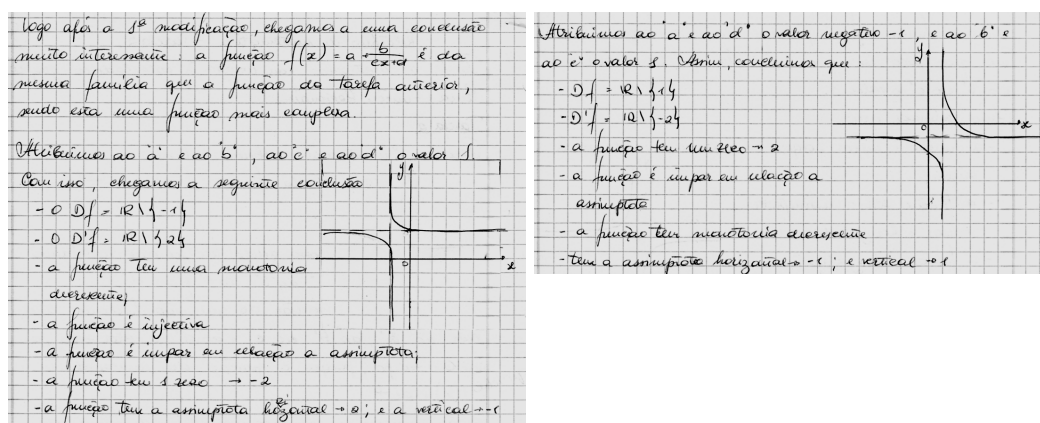 logo após a 1ª modificação, chegamos a uma conclusão
muito interessante: a função f(x) = a + b/(cx+d) é da
mesma família que a função da tarefa anterior,
sendo esta uma função mais complexa.
Atribuimos ao "a" e ao "b", ao "c" e ao "d" o valor 1.
Com isso, chegamos a seguinte conclusão
- O Df = IR\{-1}
- O D'f = IR\{2}
- a função tem uma monotonia
decrescente;
- a função é injectiva
- a função é impar em relação a assimptota;
- a função tem 1 zero → -2
- a função tem a assimptota horizontal → 2; e a vertical → -1
y
x
0
Atribuimos ao "a" e ao "d" o valor negativo -1, e ao "b" e
ao "c" o valor 1. Assim, concluimos que:
- Df = IR\{1}
- D'f = IR\{-2}
- a função tem um zero → 2
- a função é impar em relação a
assimptota
- a função tem monotonia decrescente
- tem a assimptota horizontal → -1; e vertical → 1
y
x
0